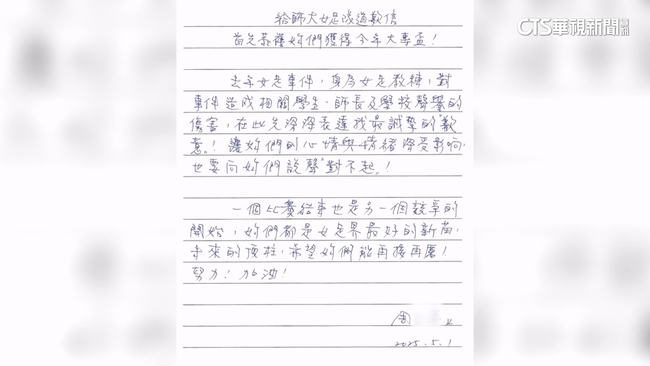 CTS華視新聞
給師大女足隊道歉信
首先恭禧妳們獲得今年大專盃!
去年女足事件,身為女足教練,對
事件造成相關學生、師長及學校聲譽的
傷害,在此先深深表達我最誠摯的"歉
意"!讓妳們的心情與情緒深受影響,
也要向妳們說聲"對不起"!
一個比賽結束也是另一個競爭的
開始,妳們都是女足界最好的新苗,
未來的頂柱,希望妳們能再接再厲!
努力!加油!
周
2025.5.1